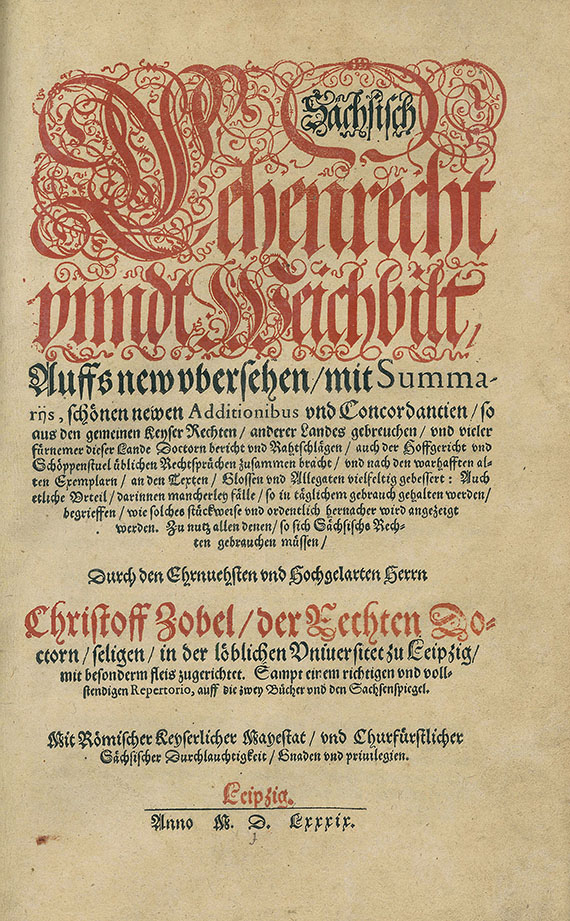 Sächsisch
Lehenrecht
vnndt Weichbilt/
Auffs new vbersehen/ mit Summa-
rijs, schönen newen Additionibus vnd Concordantien/ so
aus den gemeinen Keyser Rechten/ anderer Landes gebreuchen/ vnd vieler
fürnemer dieser Lande Doctorn bericht vnd Rahtschlägen/ auch der Hoffgericht vnd
Schöppenstuel üblichen Rechtsprüchen zusammen bracht/ vnd nach den warhafften al-
ten Exemplarn/ an den Texten/ Glossen vnd Allegaten vielfeltig gebessert: Auch
etliche Vrteil/ darinnen mancherley fälle/ so in täglichem gebrauch gehalten werden/
begrieffen/ wie solches stückweise vnd ordentlich hernacher wird angezeigt
werden. Zu nutz allen denen/ so sich Sächsischs Rech-
ten gebrauchen müssen/
Durch den Ehrnuehsten vnd Hochgelarten Herrn
Christoff Zobel/ der Rechten Do-
ctorn/ seligen/ in der löblichen Vniuersitet zu Leipzig/
mit besonderm fleis zugerichtet. Sampt einem richtigen vnd voll-
stendigen Repertorio, auff die zwey Bücher vnd den Sachsenspiegel.
Mit Römischer Keyserlicher Mayestat/ vnd Churfürstlicher
Sächsischer Durchlauchtigkeit/ Gnaden vnd priuilegien.
Leipzig.
Anno M. D. LXXXIX.